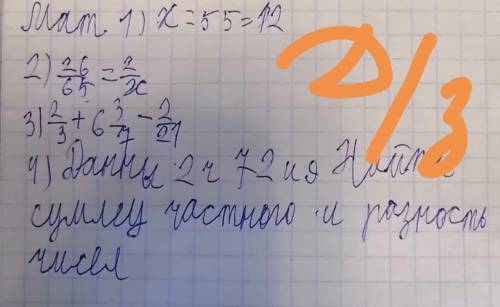 Мат. 1) x = 55 = 12
Д/з
2) 26/65 = 2/x
3) 2/3 + 6 3/7 - 2/21
4) Данны 2 ч 72 и я Найти
сумлец частного и разность
чисел